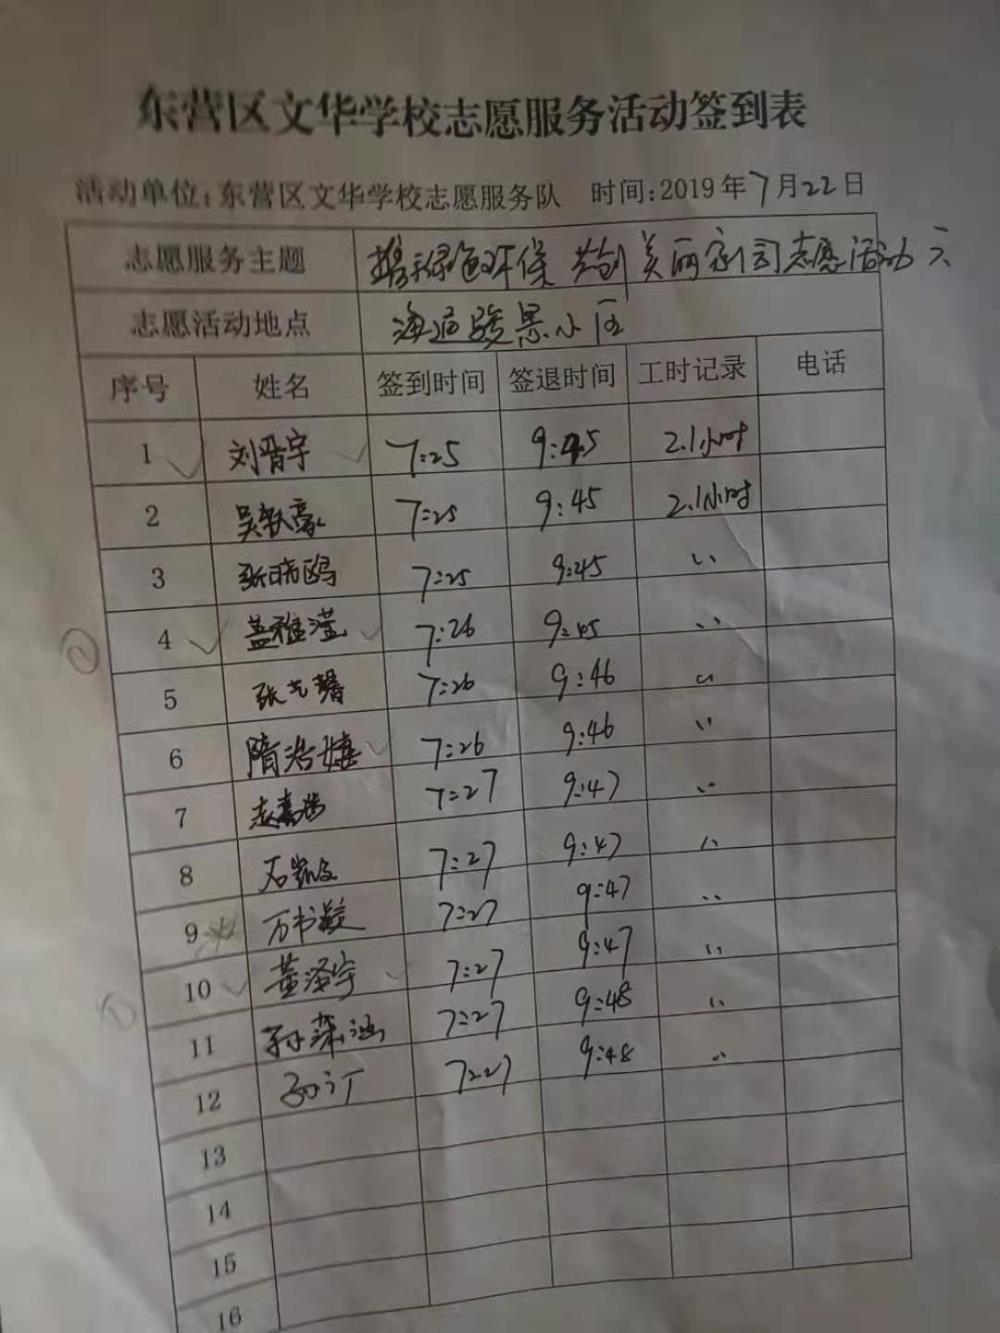 东营区文华学校志愿服务活动签到表
活动单位:东营区文华学校志愿服务队 时间:2019年7月22日
志愿服务主题 携手绿色环保 共创美丽家园志愿活动六
志愿活动地点 海通骏景小区
序号 姓名 签到时间 签退时间 工时记录 电话
1 刘晋宇 7:25 9:45 2.1小时
2 吴 豪 7:25 9:45 2.1小时
3 张 鸥 7:25 9:45 〃
4 盖雅滢 7:26 9:45 〃
5 张艺馨 7:26 9:46 〃
6 隋浩 7:26 9:46 〃
7 7:27 9:47 〃
8 石 7:27 9:47 〃
9 万书 7:27 9:47 〃
10 董泽宇 7:27 9:47 〃
11 孙 涵 7:27 9:48 〃
12 7:27 9:48 〃
13
14
15
16